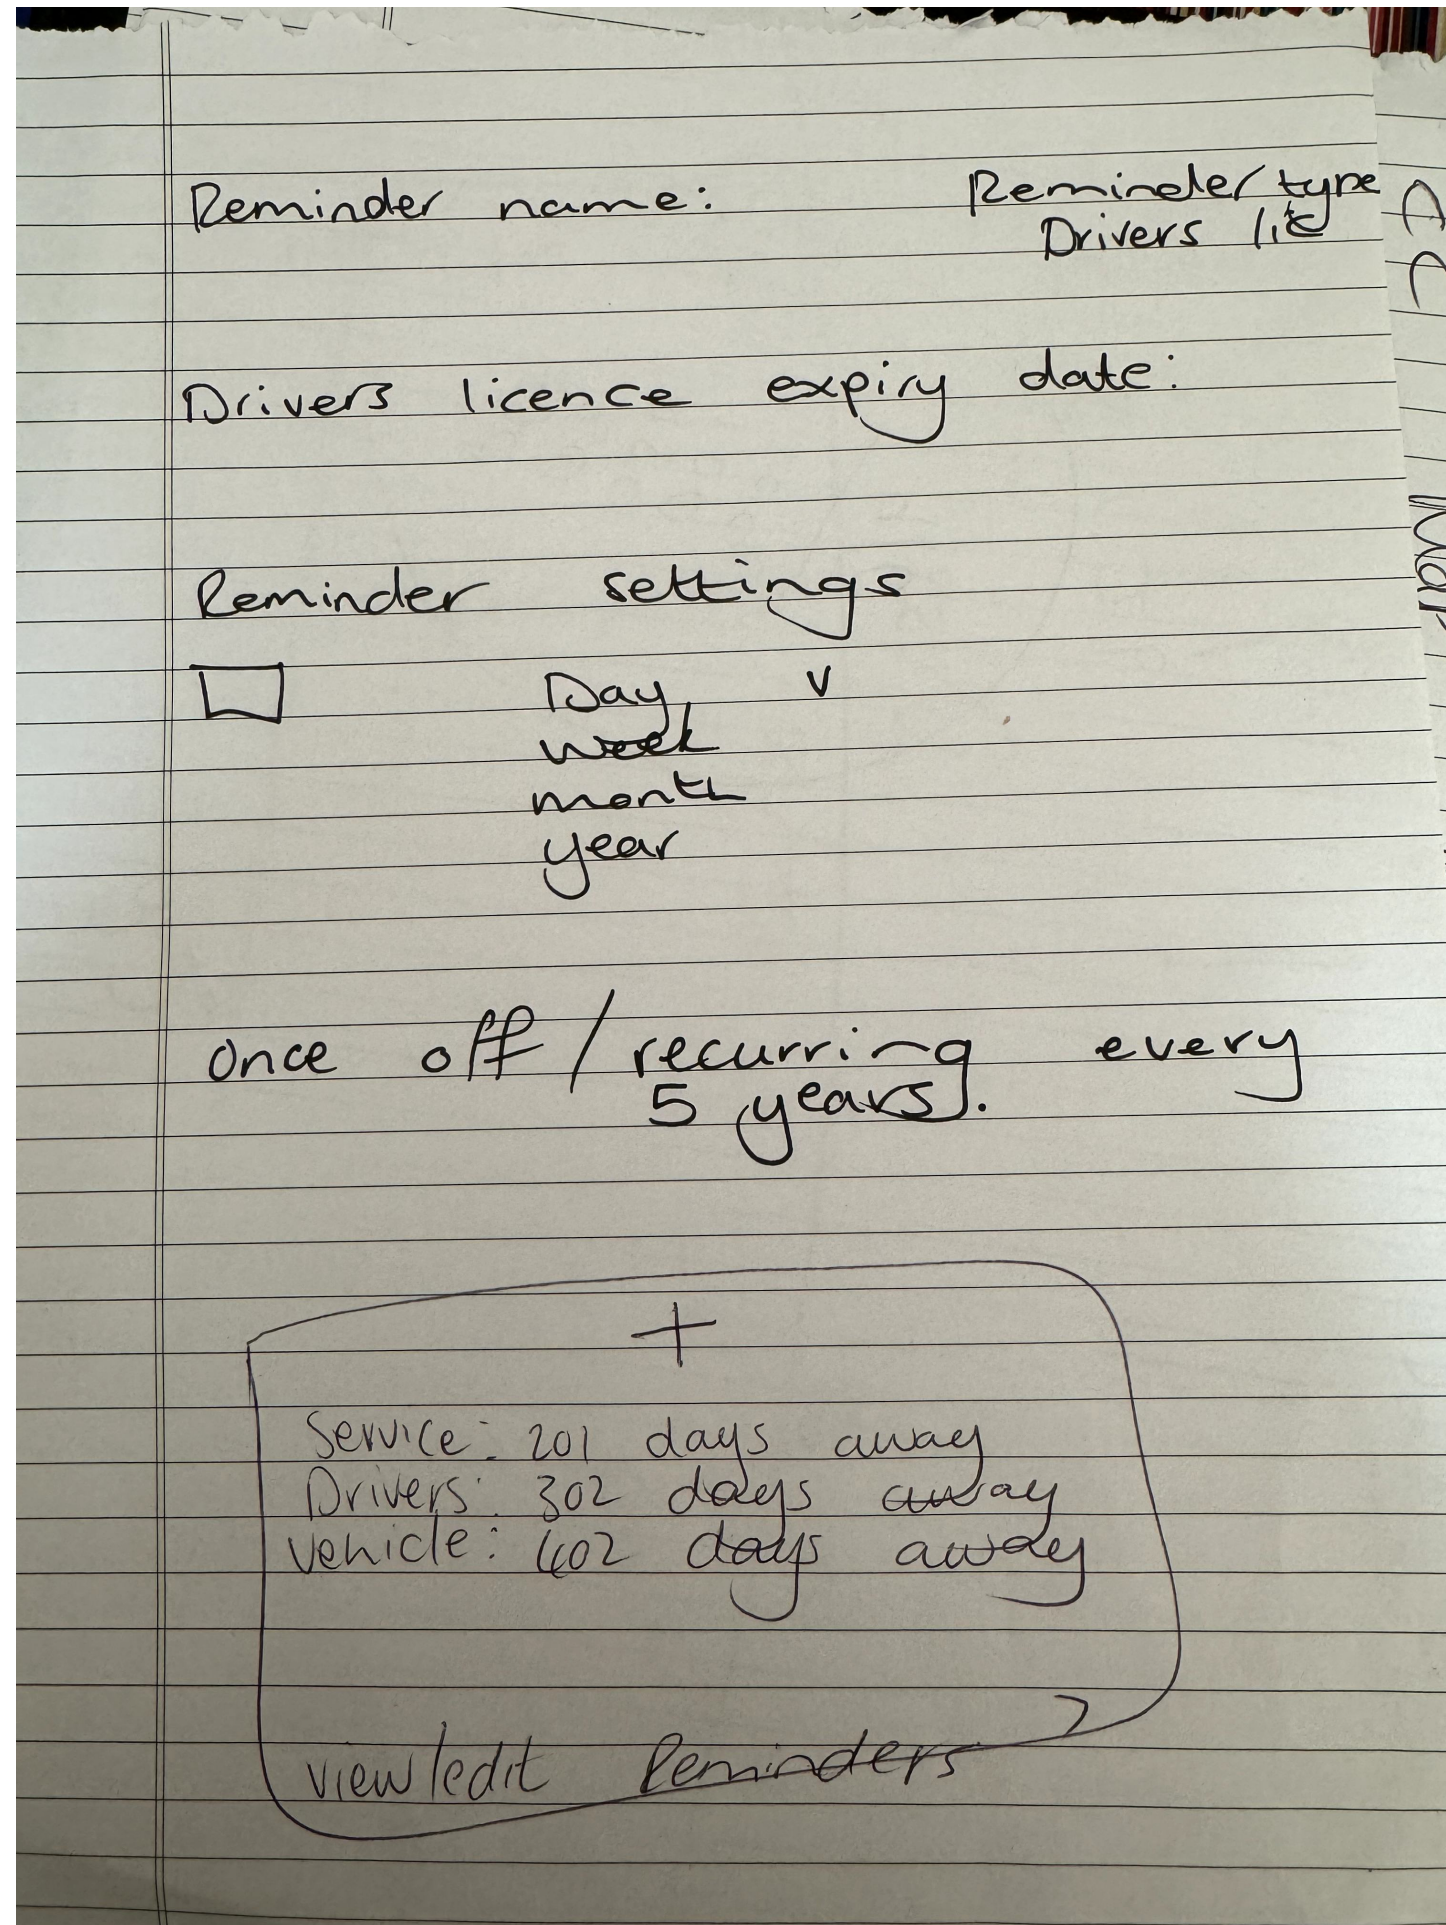 Reminder name: Reminder type
Drivers lic
Drivers licence expiry date:
Reminder settings
Day v
week
month
year
once off / recurring every
5 years.
+
Service: 201 days away
Drivers: 302 days away
vehicle: 402 days away
view/edit Reminders >